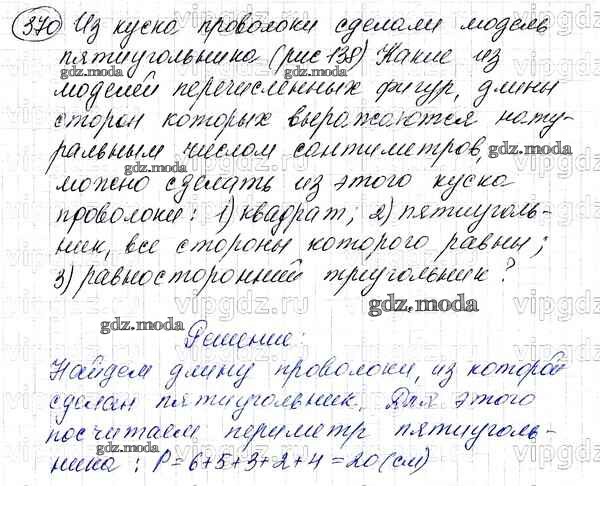 370 Из куска проволоки сделали модель
пятиугольника (рис 138) Какие из
gdz.moda gdz.moda
моделей перечисленных фигур, длины
сторон которых выражаются нату-
ральным числом сантиметров,
gdz.moda gdz.moda
можно сделать из этого куска
проволоки: 1) квадрат; 2) пятиуголь-
ник, все стороны которого равны;
3) равносторонний треугольник?
gdz.moda
gdz.moda
Решение:
Найдем длину проволоки, из которой
сделан пятиугольник. Для этого
посчитаем периметр пятиуголь-
ника: P=6+5+3+2+4=20(см)
vipgdz.ru